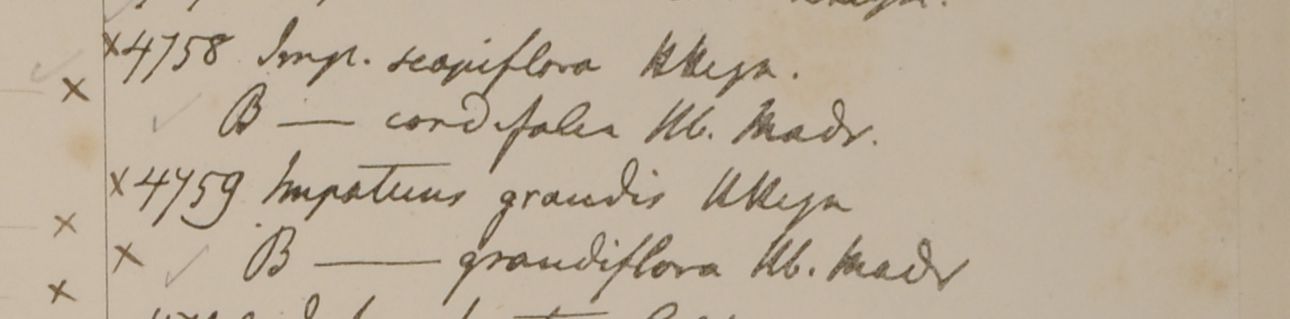 x 4758 Imp. scapiflora HHeyn.
x B — cordifolia Hb. Madr.
x 4759 Impatiens grandis HHeyn
x x B — grandiflora Hb. Madr
x